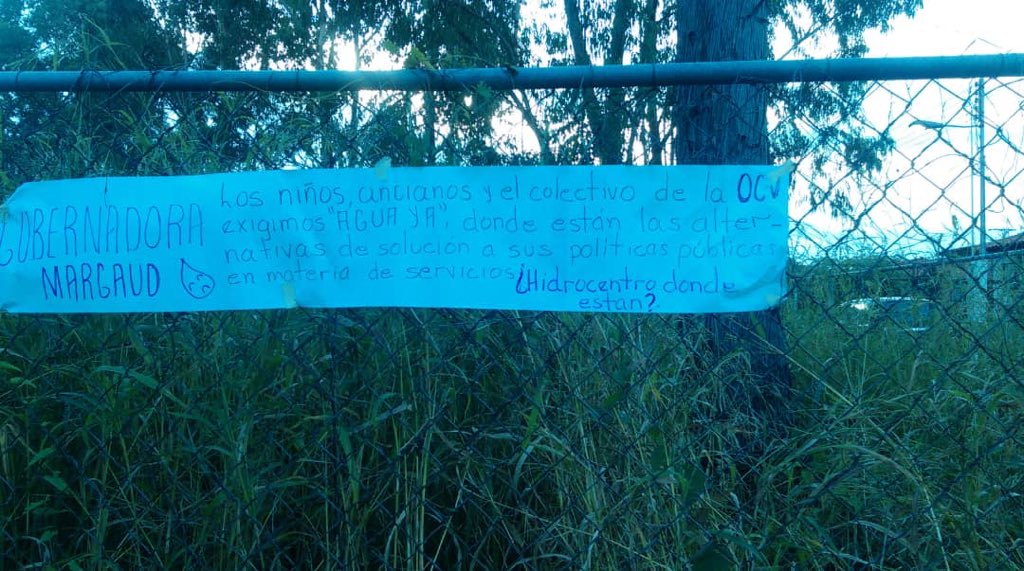 GOBERNADORA
MARGAUD
Los niños, ancianos y el colectivo de la OCV
exigimos "AGUA YA", donde están las alter-
nativas de solución a sus políticas públicas
en materia de servicios ¿Hidrocentro donde
están?